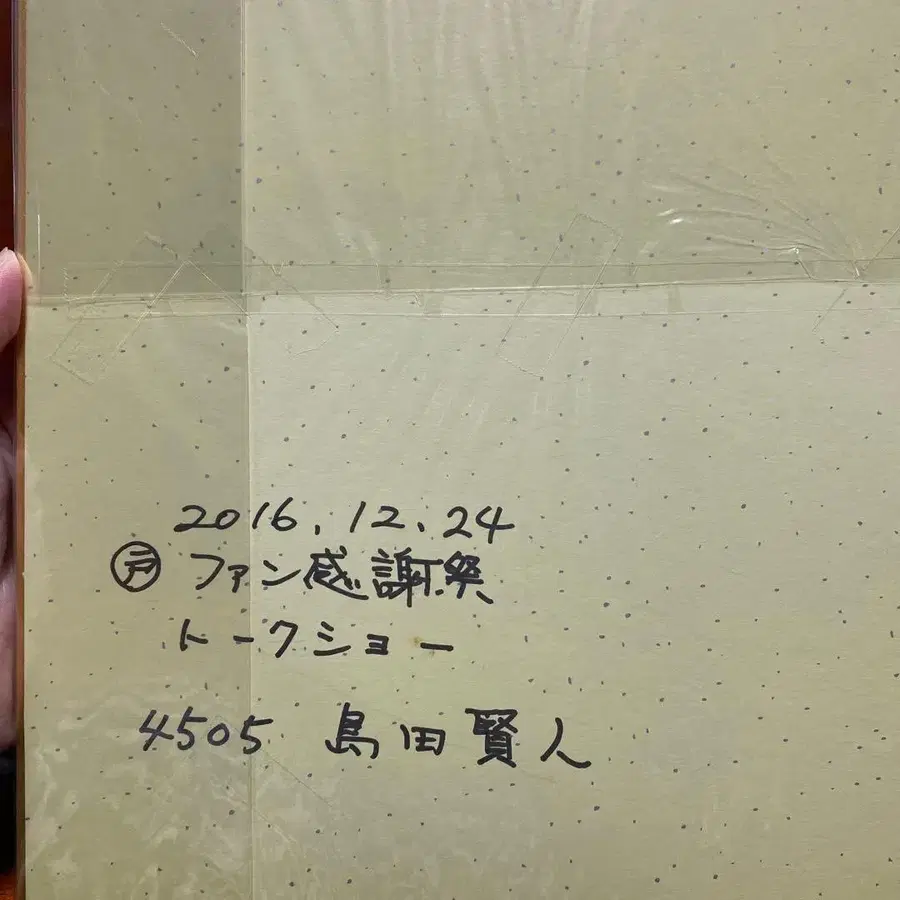 2016.12.24
㋣ ファン感謝祭
トークショー
4505 島田賢人